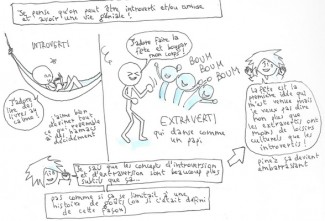 Je pense qu'on peut être introverti et/ou
et avoir une vie géniale!
INTROVERTI
J'adore
lire des
livres au
calme!
J'aime bien
deviner tout
ce qui
décidément
J'adore faire la
fête et bouger
mon corps!
BOUM
BOUM
BOUM
EXTRAVERTI
qui danse comme
un papi
La fête est la
première idée qui
m'est venue mais
je veux pas dire
non plus que
les extravertis ont
moins de loisirs
culturels que les
introvertis!
ça devient
embarrassant
Je sais que les concepts d'introversion
et d'extraversion sont beaucoup plus
subtils que ça...
pas comme si ça se limitait à une
histoire de goûts (ou si c'était défini
de cette façon)